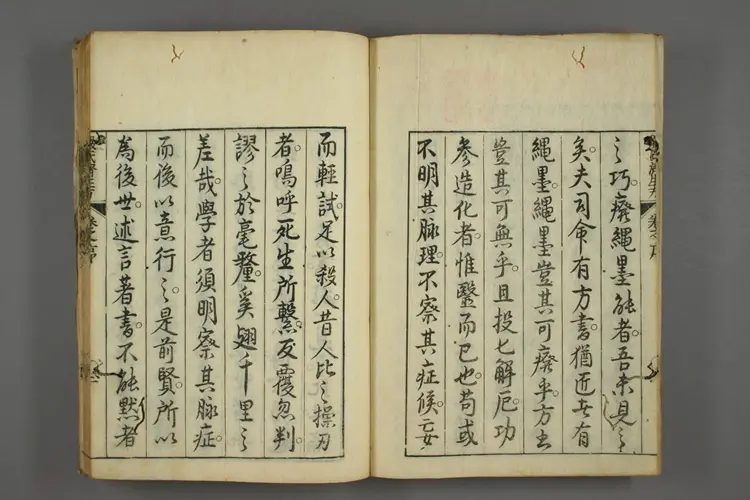 之巧。廢繩墨能者。吾未見之
矣。夫司命有方書。猶匠者有
繩墨。繩墨豈其可廢乎。方書
豈其可無乎。且投匕解厄。功
參造化者。惟毉而已也。苟或
不明其脉理。不察其症候。妄
而輕試。足以殺人。昔人比之操刃
者。嗚呼死生所繫。反覆忽判。
謬之於毫釐。奚翅千里之
差哉。學者須明察其脉症。
而後以意行之。是前賢所以
為後世。述言著書。不能默者